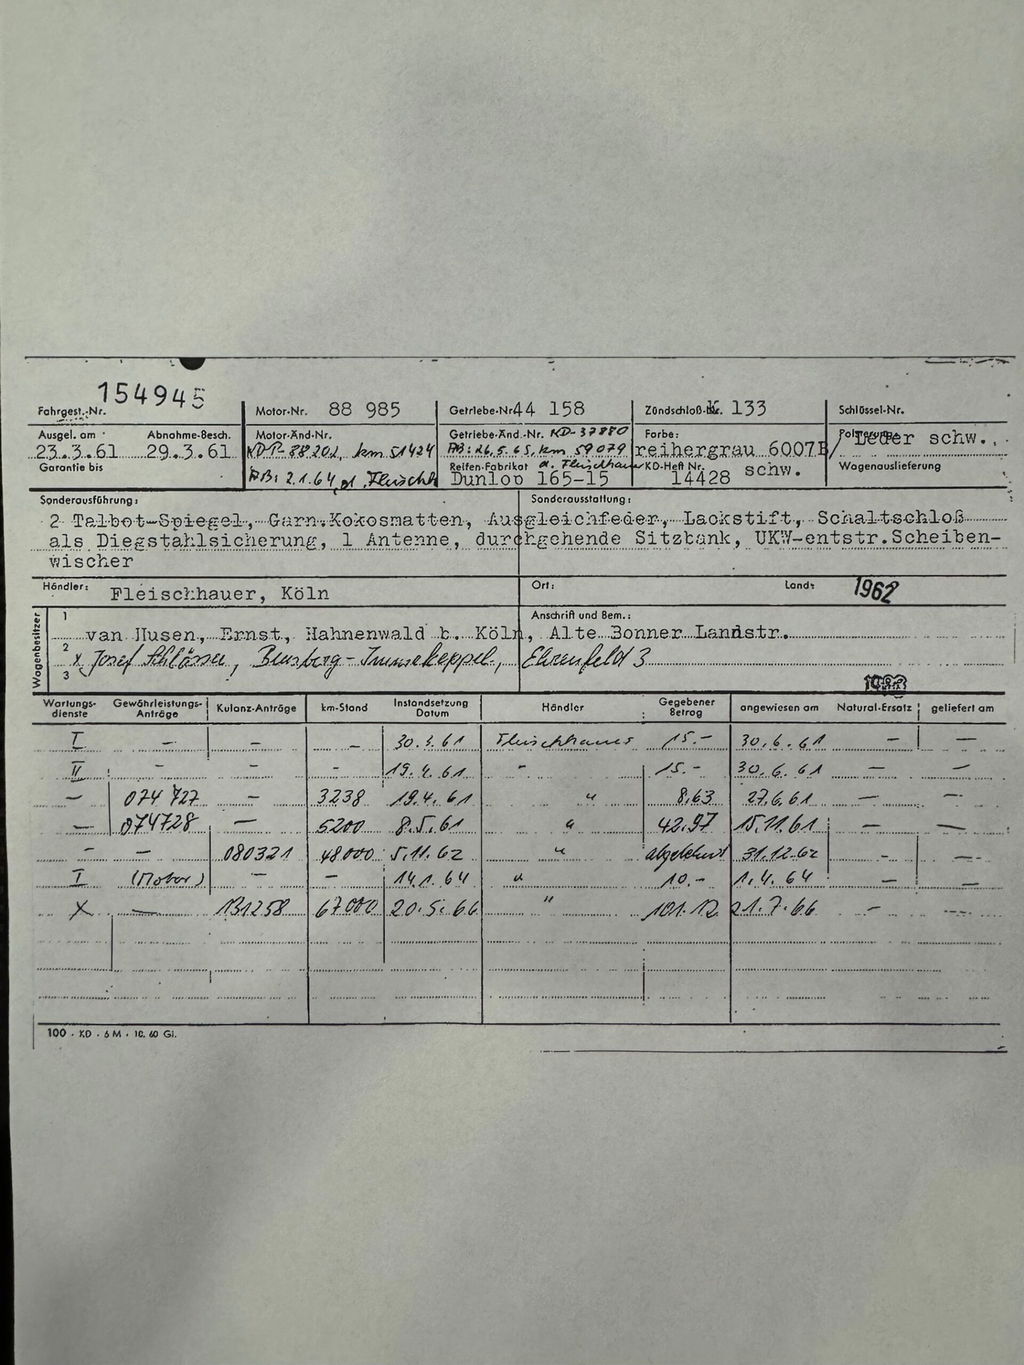 154945
Fahrgest.-Nr. Motor-Nr. 88 985 Getriebe-Nr. 44 158 Zündschloß-Nr. K. 133 Schlüssel-Nr.
Ausgel. am Abnahme-Besch. Motor-Änd-Nr. Getriebe-Änd.-Nr. KD-37880 Farbe: Polsterung:
23.3.61 29.3.61 KDP-88202, km 51424 AB: 26.5.65, km 59079 reihergrau 6007B/ Leder schw..
Garantie bis AB: 2.1.64, d. Fleischh Reifen-Fabrikat d. Fleischhauer KD-Heft Nr. schw. Wagenauslieferung
Dunlop 165-15 14428
Sonderausführung: Sonderausstattung:
2 Talbot-Spiegel, Garn.Kokosmatten, Ausgleichfeder, Lackstift, Schaltschloß
als Diegstahlsicherung, 1 Antenne, durchgehende Sitzbank, UKW-entstr.Scheiben-
wischer
Händler: Fleischhauer, Köln Ort: Land: 1962
Wagenbesitzer
1 Anschrift und Bem.:
van Husen, Ernst, Hahnenwald b. Köln, Alte Bonner Landstr.
2 x Josef Schlösser, Bensberg-Immekeppel, Ehrenfeld 3
3
Wartungs-dienste Gewährleistungs-Anträge Kulanz-Anträge km-Stand Instandsetzung Datum Händler Gegebener Betrag angewiesen am Natural-Ersatz geliefert am
I — — — 30.3.61 Fleischhauer 15.- 30.6.61 — —
II — — - 19.4.61 " 15.- 30.6.61 — —
— 074 727 — 3238 19.4.61 " 8,63 27.6.61 — —
— 074728 — 5200 8.5.61 " 42.97 15.11.61 — —
— — 080321 48000 5.11.62 " abgelehnt 31.12.62 - —
I (Motor) — — 14.1.64 " 10.- 1.4.64 — —
X — 131258 67000 20.5.66 " 101.12 21.7.66 — —
100 - KD - 6 M - 10. 60 Gl.